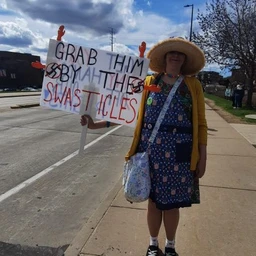 GRAB THIM
BY AH THE
SWASTICLES